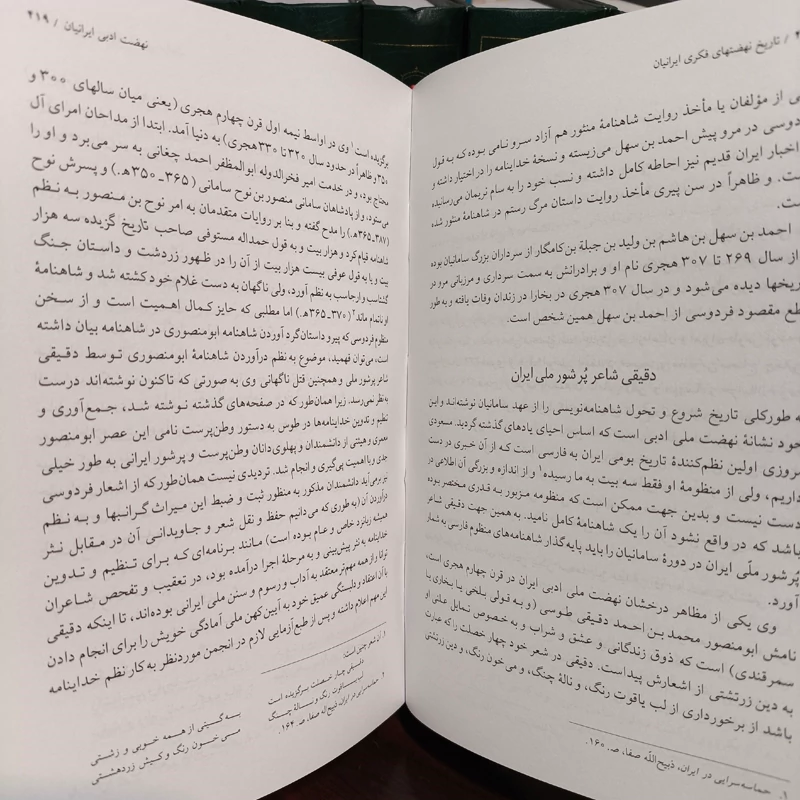 / تاریخ نهضتهای فکری ایرانیان
ی از مؤلفان یا مأخذ روایت شاهنامهٔ منثور هم آزاد سرو نامی بوده که به قول
دوسی در مرو پیش احمد بن سهل می‌زیسته و نسخهٔ خداینامه را در اختیار داشته و
اخبار ایران قدیم نیز احاطه کامل داشته و نسب خود را به سام نریمان می‌رسانیده
ست. و ظاهراً در سن پیری مأخذ روایت داستان مرگ رستم در شاهنامهٔ منثور شده
ست.
احمد بن سهل بن هاشم بن ولید بن جبلة بن کامگار از سرداران بزرگ سامانیان بوده
از سال ۲۶۹ تا ۳۰۷ هجری نام او و برادرانش به سمت سرداری و مرزبانی مرو در
ریخها دیده می‌شود و در سال ۳۰۷ هجری در بخارا در زندان وفات یافته و به طور
طع مقصود فردوسی از احمد بن سهل همین شخص است.
دقیقی شاعر پُر شور ملی ایران
ه طورکلی تاریخ شروع و تحول شاهنامه‌نویسی را از عهد سامانیان نوشته‌اند و این
خود نشانهٔ نهضت ملی ادبی است که اساس احیای یادهای گذشته گردید. مسعودی
مروزی اولین نظم‌کنندهٔ تاریخ بومی ایران به فارسی است که از آن خبری در دست
داریم، ولی از منظومهٔ او فقط سه بیت به ما رسیده۱ و از اندازه و بزرگی آن اطلاعی در
دست نیست و بدین جهت ممکن است که منظومه مزبور به قدری مختصر بوده
باشد که در واقع نشود آن را یک شاهنامهٔ کامل نامید. به همین جهت دقیقی شاعر
پُرشور ملّی ایران در دورهٔ سامانیان را باید پایه‌گذار شاهنامه‌های منظوم فارسی به شمار
آورد.
وی یکی از مظاهر درخشان نهضت ملی ادبی ایران در قرن چهارم هجری است،
نامش ابومنصور محمد بن احمد دقیقی طوسی (و به قولی بلخی یا بخاری یا
سمرقندی) است که ذوق زندگانی و عشق و شراب و به خصوص تمایل علنی او
به دین زرتشتی از اشعارش پیداست. دقیقی در شعر خود چهار خصلت را که عبارت
باشد از برخورداری از لب یاقوت رنگ، و نالهٔ چنگ، و می‌خون رنگ، و دین زرتشتی
۱. حماسه‌سرایی در ایران، ذبیح‌اللّه صفا، ص ۱۶۰.
نهضت ادبی ایرانیان / ۴۱۹
برگزیده است۱ وی در اواسط نیمه اول قرن چهارم هجری (یعنی میان سالهای ۳۰۰ و
۳۵۰ و ظاهراً در حدود سال ۳۲۰ تا ۳۳۰ هجری) به دنیا آمد. ابتدا از مداحان امرای آل
محتاج بود، و در خدمت امیر فخرالدوله ابوالمظفر احمد چغانی به سر می‌برد و او را
می‌ستود، و از پادشاهان سامانی منصور بن نوح سامانی (۳۶۵-۳۵۰ه‍.) و پسرش نوح
(۳۸۷-۳۶۵ه‍.) را مدح گفته و بنا بر روایات متقدمان به امر نوح بن منصور به نظم
شاهنامه قیام کرد و هزار بیت و به قول حمداله مستوفی صاحب تاریخ گزیده سه هزار
بیت و یا به قول عوفی بیست هزار بیت از آن را در ظهور زردشت و داستان جنگ
گشتاسب و ارجاسب به نظم آورد، ولی ناگهان به دست غلام خود کشته شد و شاهنامهٔ
او ناتمام ماند۲ (۳۷۰-۳۶۵ه‍.) اما مطلبی که حایز کمال اهمیت است و از سخن
منظوم فردوسی که پیرو داستان گرد آوردن شاهنامه ابومنصوری در شاهنامه بیان داشته
است، می‌توان فهمید، موضوع به نظم درآوردن شاهنامهٔ ابومنصوری توسط دقیقی
شاعر پرشور ملی و همچنین قتل ناگهانی وی به صورتی که تاکنون نوشته‌اند درست
به نظر نمی‌رسد. زیرا همان‌طور که در صفحه‌های گذشته نوشته شد، جمع‌آوری و
تنظیم و تدوین خداینامه‌ها در طوس به دستور وطن‌پرست نامی این عصر ابومنصور
معمری و هیئتی از دانشمندان و پهلوی‌دانان وطن‌پرست و پرشور ایرانی به طور خیلی
جدی و با اهمیت پی‌گیری و انجام شد. تردیدی نیست همان‌طور که از اشعار فردوسی
نیز برمی‌آید دانشمندان مذکور به منظور ثبت و ضبط این میراث گرانبها و به نظم
درآوردن آن (به طوری که می‌دانیم حفظ و نقل شعر و جاویدانی آن در مقابل نثر
همیشه زبانزد خاص و عام بوده است) مانند برنامه‌ای که برای تنظیم و تدوین
خداینامه به نثر پیش‌بینی و به مرحلهٔ اجرا درآمده بود، در تعقیب و تفحص شاعران
توانا و از همه مهم‌تر معتقد به آداب و رسوم و سنن ملی ایرانی بوده‌اند، تا اینکه دقیقی
با آن اعتقاد و دلبستگی عمیق خود به آیین کهن ملی آمادگی خویش را برای انجام دادن
این مهم اعلام داشته و پس از طبع‌آزمایی لازم در انجمن موردنظر به کار نظم خداینامه
۱. آن شعر چنین است:
دقیقی چار خصلت برگزیده است به گیتی از همه خوبی و زشتی
لب یاقوت رنگ و نالهٔ چنگ می خون رنگ و کیش زردهشتی
۲. حماسه‌سرایی در ایران، ذبیح اله صفا، ص ۱۶۴.